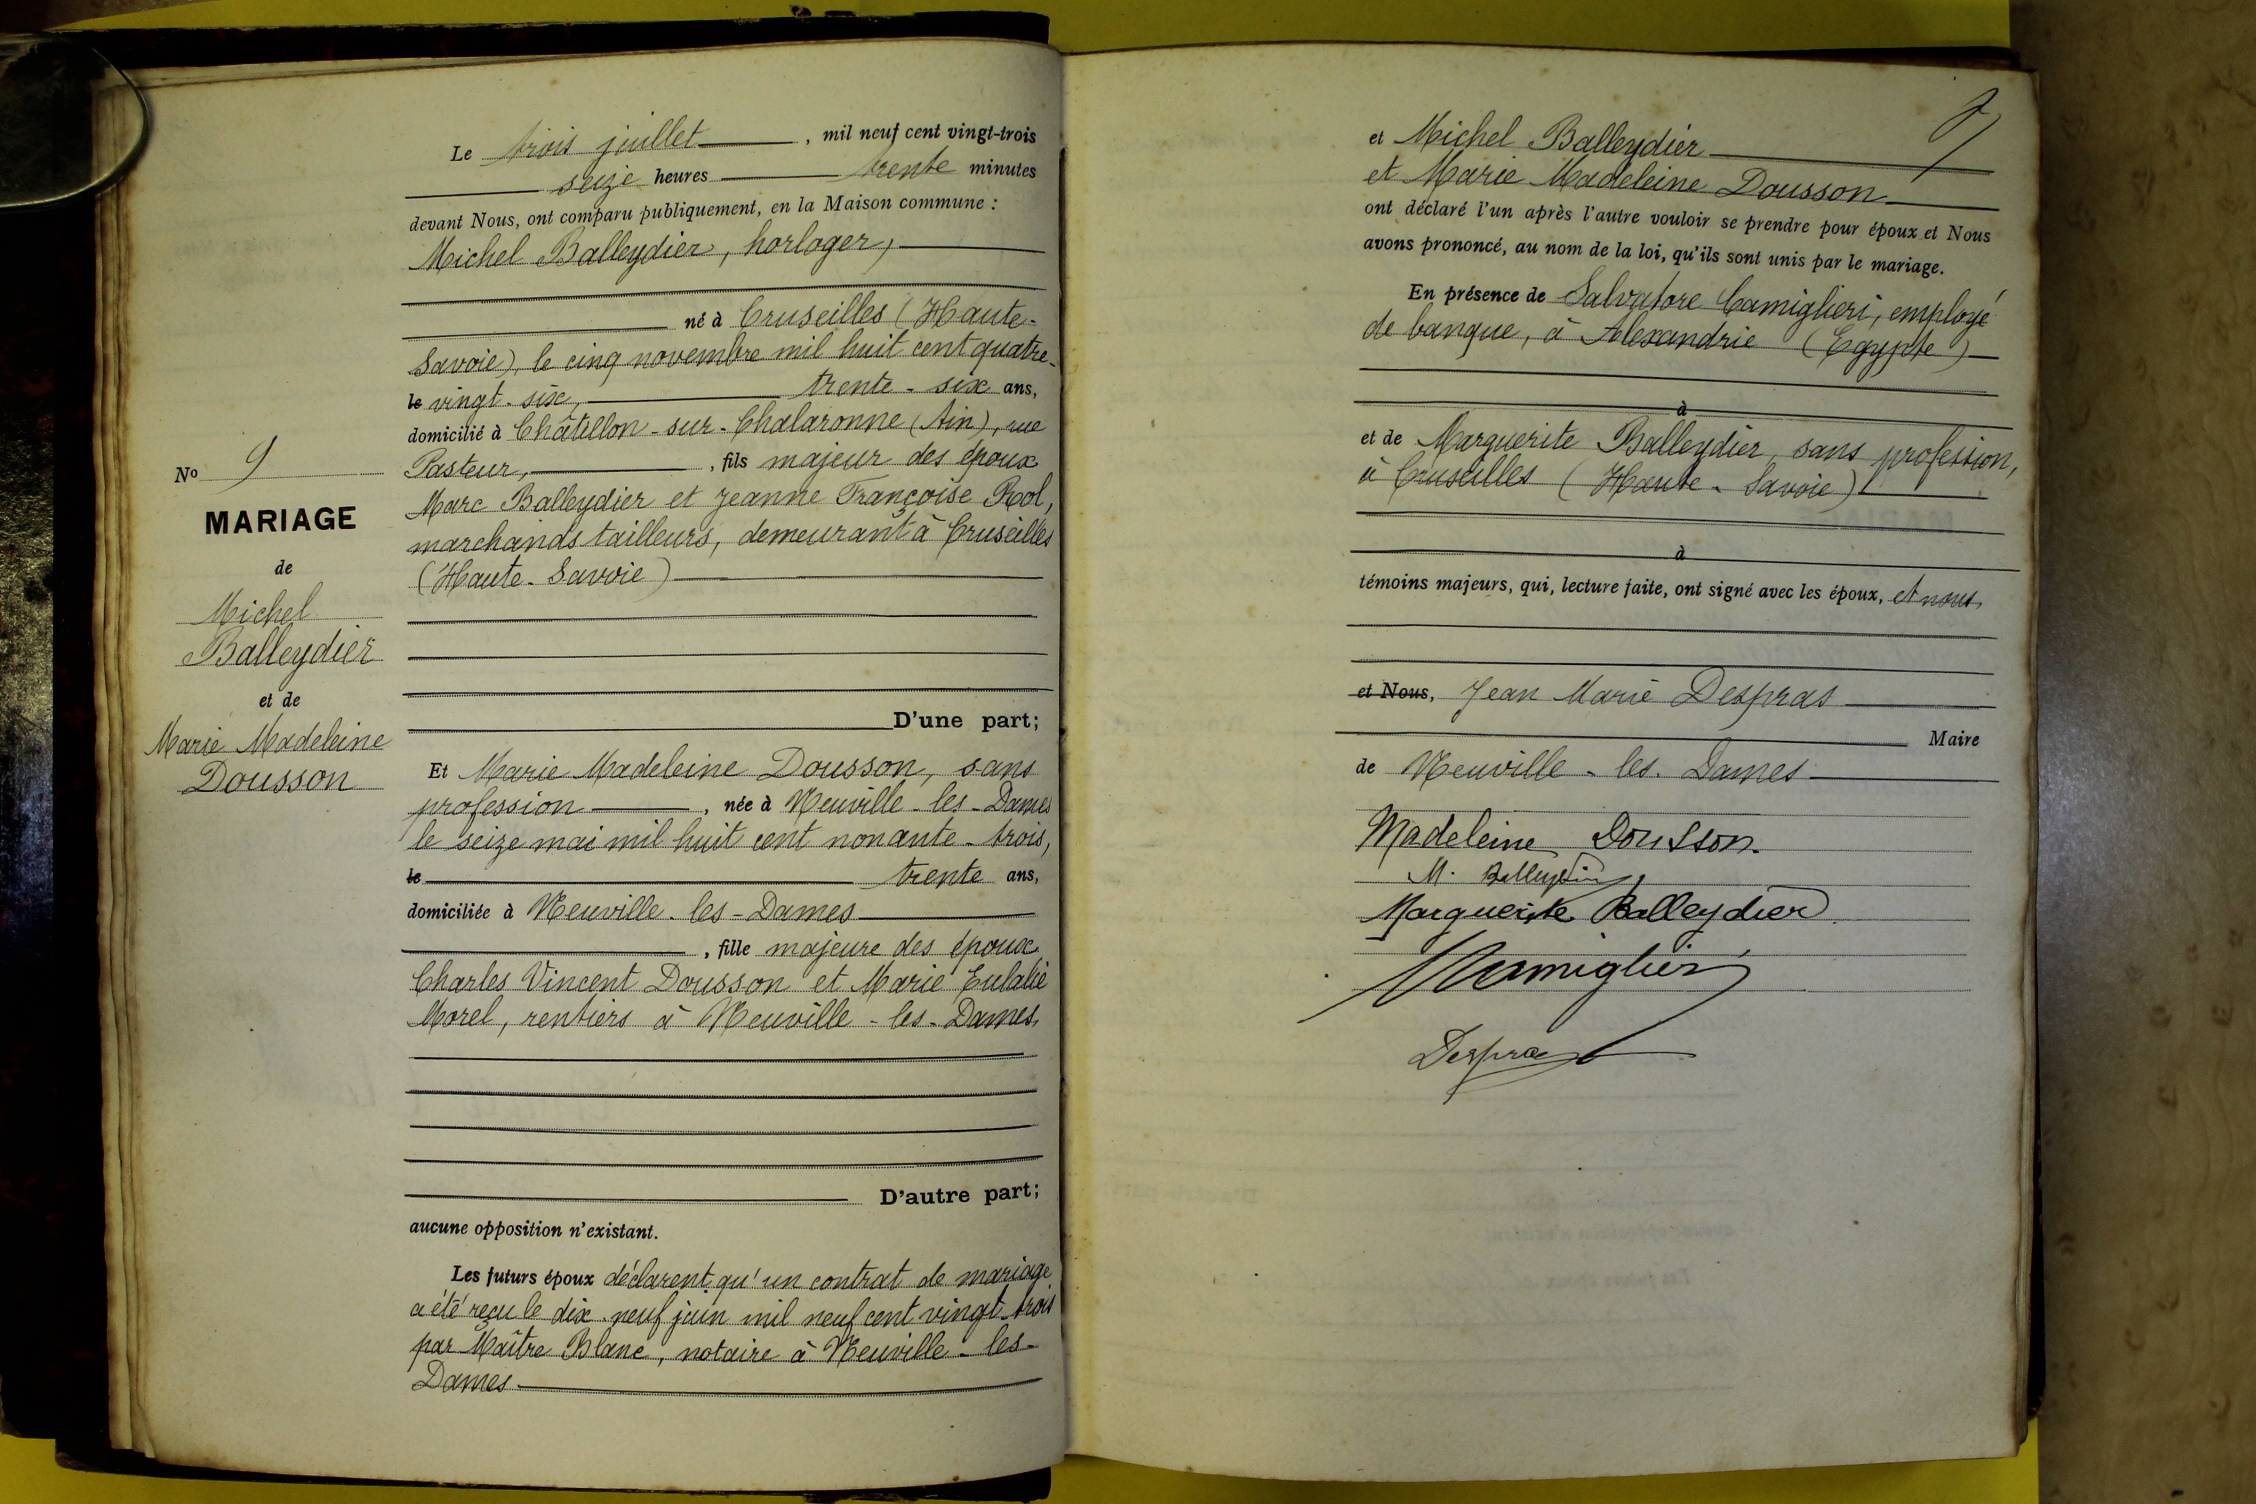 Le trois juillet, mil neuf cent vingt-trois
seize heures trente minutes
devant Nous, ont comparu publiquement, en la Maison commune :
Michel Balleydier, horloger,
né à Cruseilles (Haute-
Savoie), le cinq novembre mil huit cent quatre-
le vingt-six, trente-six ans,
domicilié à Châtillon-sur-Chalaronne (Ain), rue
Pasteur, , fils majeur des époux
Marc Balleydier et Jeanne Françoise Rol,
marchands tailleurs, demeurant à Cruseilles
(Haute-Savoie)
D'une part;
No 9
MARIAGE
de
Michel
Balleydier
et de
Marie Madeleine
Dousson
Et Marie Madeleine Dousson, sans
profession, née à Neuville-les-Dames
le seize mai mil huit cent nonante-trois,
le trente ans,
domiciliée à Neuville-les-Dames
, fille majeure des époux
Charles Vincent Dousson et Marie Eulalie
Morel, rentiers à Neuville-les-Dames
D'autre part;
aucune opposition n'existant.
Les futurs époux déclarent qu'un contrat de mariage
a été reçu le dix-neuf juin mil neuf cent vingt-trois
par Maître Blanc, notaire à Neuville-les-
Dames
et Michel Balleydier
et Marie Madeleine Dousson
ont déclaré l'un après l'autre vouloir se prendre pour époux et Nous
avons prononcé, au nom de la loi, qu'ils sont unis par le mariage.
En présence de Salvatore Camiglieri, employé
de banque, à Alexandrie (Egypte)
à
et de Marguerite Balleydier, sans profession,
à Cruseilles (Haute-Savoie)
à
témoins majeurs, qui, lecture faite, ont signé avec les époux, et nous
et Nous, Jean Marie Despras
Maire
de Neuville-les-Dames
Madeleine Dousson.
M. Balleydier
Marguerite Balleydier
Camiglieri
Despras